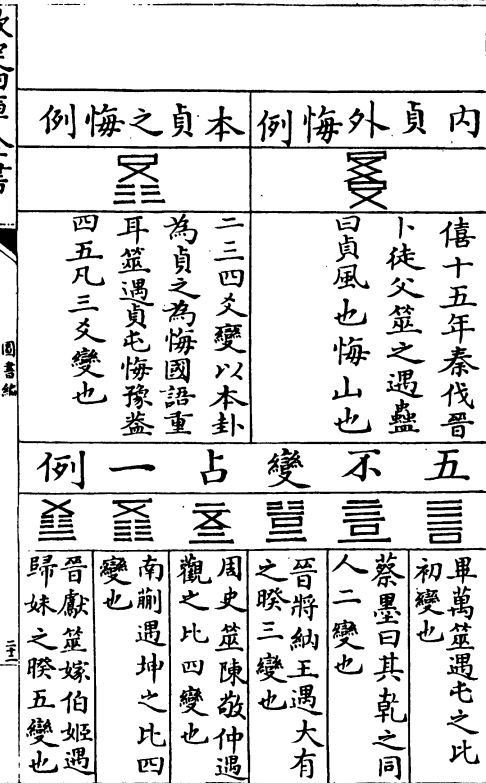 內貞外悔例
僖十五年秦伐晉
卜徒父筮之遇蠱
曰貞風也悔山也
本貞之悔例
二三四爻變以本卦
為貞之為悔國語重
耳筮遇貞屯悔豫葢
四五凡三爻變也
五不變占一例
畢萬筮遇屯之比
初變也
蔡墨曰其乾之同
人二變也
晉將納王遇大有
之暌三變也
周史筮陳敬仲遇
觀之比四變也
南蒯遇坤之比四
變也
晉獻筮嫁伯姬遇
歸妹之暌五變也
欽定四庫全書
圖書編